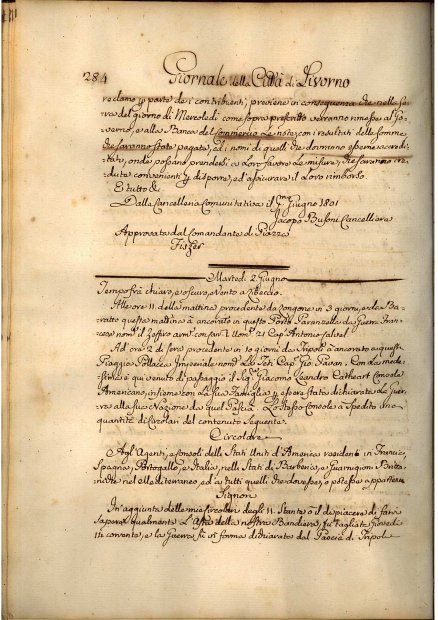 284 Giornale della Città di Livorno
reclamo p parte de i contribuenti, previene in conseguenza che nella se-
ra del giorno di Mercoledi come sopra prescritto verranno rimesse al Go-
verno, e alla Banca del Commercio le note, con i resultati delle somme,
che saranno state pagate, ed i nomi di quelli che dovranno esserne accredi-
tati, onde possano prendersi a Loro favore le misure, che saranno cre-
dute convenienti p disporre, ed assicurare il Loro rimborso.
E tutto &.
Dalla Cancelleria Comunitativa il Pmo Giugno 1801
Jacopo Busoni Cancelliere
Approvata dal Comandante di Piazza
Fiszer
Martedi 2 Giugno
Tempo frà chiaro, e oscuro, e vento a Libeccio.
Alle ore 11 della mattina procedente da in 3 giorni, e da Ba-
ratto questa mattina à ancorato in questo Porto Paranzella da Guerra Fran-
cese nomta il Zeffiro armta con 21 Cap Antonio
Ad ore 2 di sera procedente in 10 giorni da Tripoli à ancorato a questa
Piaggia Pollacca Imperiale nomta Cap Gio Con La mede-
sima è qui venuto di passaggio il Sigr Giacomo Leandro Cathcart Console
Americano, insieme con La Sua Famiglia p essere stata dichiarata La Guer-
ra alla Sua Nazione da quel Pascià. Lo stesso Console à spedito una
quantità di Circolari del contenuto Seguente.
Circolare
Agl'Agenti, e Consoli delle Stati Uniti d'America residenti in Francia,
Spagna, Portogallo, e Italia, nelli Stati di Barberia, e Guarnigioni Britta-
niche nel Mediterraneo, ed a tutti quelli che dovesse, o potesse appartenere
Signori
In aggiunta delle mie Circolari degli 11. Stante ò il dispiacere di farvi
sapere qualmente L'Asta della nostra Bandiera, fù tagliata Giovedi
14 corrente, e la Guerra fù in forma dichiarata dal Pascià di Tripoli